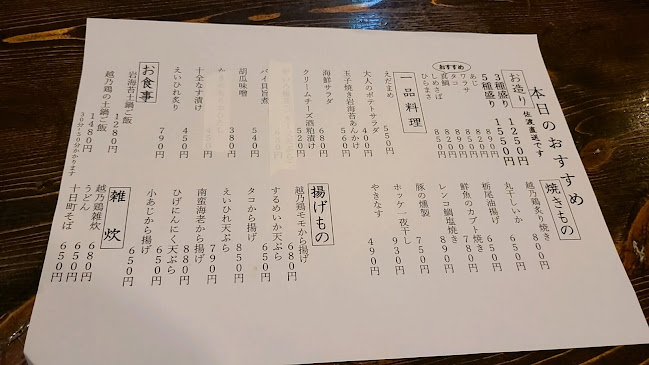 本日のおすすめ
お造り 佐渡直送です
3種盛り 1250円
5種盛り 1550円
おすすめ
あじ 890円
ワラサ 850円
タコ 850円
真鯛 890円
しめさば 850円
ひらまさ 850円
一品料理
えだまめ 550円
大人のポテトサラダ 400円
玉子焼き岩海苔あんかけ 560円
海鮮サラダ 680円
クリームチーズ酒粕漬け 520円
バイ貝旨煮 540円
胡瓜味噌 380円
十全なす漬け 450円
えいひれ炙り 790円
お食事
岩海苔土鍋ご飯 1280円
越乃鶏の土鍋ご飯 1480円
30分~50分かかります
焼きもの
越乃鶏炙り焼き 800円
丸干しいか 650円
栃尾油揚げ 650円
鮮魚のカブト焼き 780円
レンコ鯛塩焼き 890円
豚の燻製 750円
ホッケ一夜干し 930円
やきなす 490円
揚げもの
越乃鶏モモから揚げ 680円
するめいか天ぷら 650円
タコから揚げ 850円
えいひれ天ぷら 790円
南蛮海老から揚げ 880円
ひげにんにく天ぷら 650円
小あじから揚げ 650円
雑炊
越乃鶏雑炊 680円
うどん 650円
十日町そば 650円